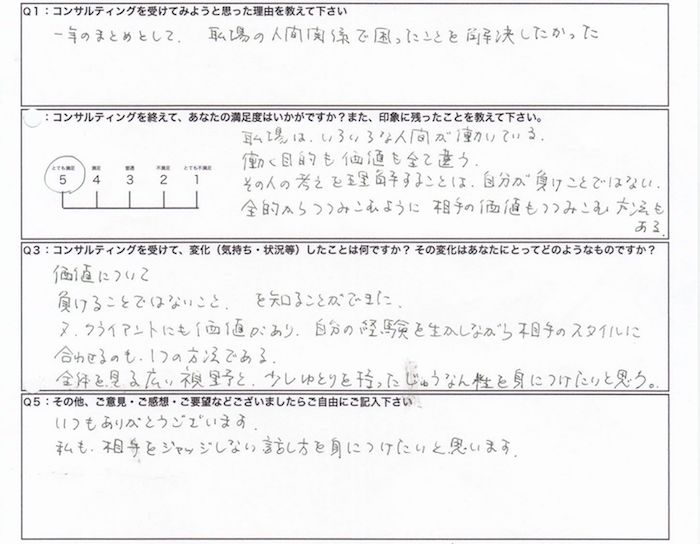 Q1：コンサルティングを受けてみようと思った理由を教えて下さい
一年のまとめとして、職場の人間関係で困ったことを解決したかった
：コンサルティングを終えて、あなたの満足度はいかがですか？また、印象に残ったことを教えて下さい。
とても満足 満足 普通 不満足 とても不満足
5 4 3 2 1
職場は、いろいろな人間が働いている。
働く目的も価値も全て違う。
その人の考えを理解することは、自分が負けことではない。
全的からつつみこむように 相手の価値もつつみこむ 方法も
ある。
Q3：コンサルティングを受けて、変化（気持ち・状況等）したことは何ですか？ その変化はあなたにとってどのようなものですか？
価値について
負けることではないこと、を知ることができました。
又、クライアントにも価値があり、自分の経験を生かしながら相手のスタイルに
合わせるのも、1つの方法である。
全体を見る広い視野と、少しゆとりを持ったじゅうなん性を身につけたいと思う。
Q5：その他、ご意見・ご感想・ご要望などございましたらご自由にご記入下さい
いつもありがとうございます。
私も、相手をジャッジしない話し方を身につけたいと思います。